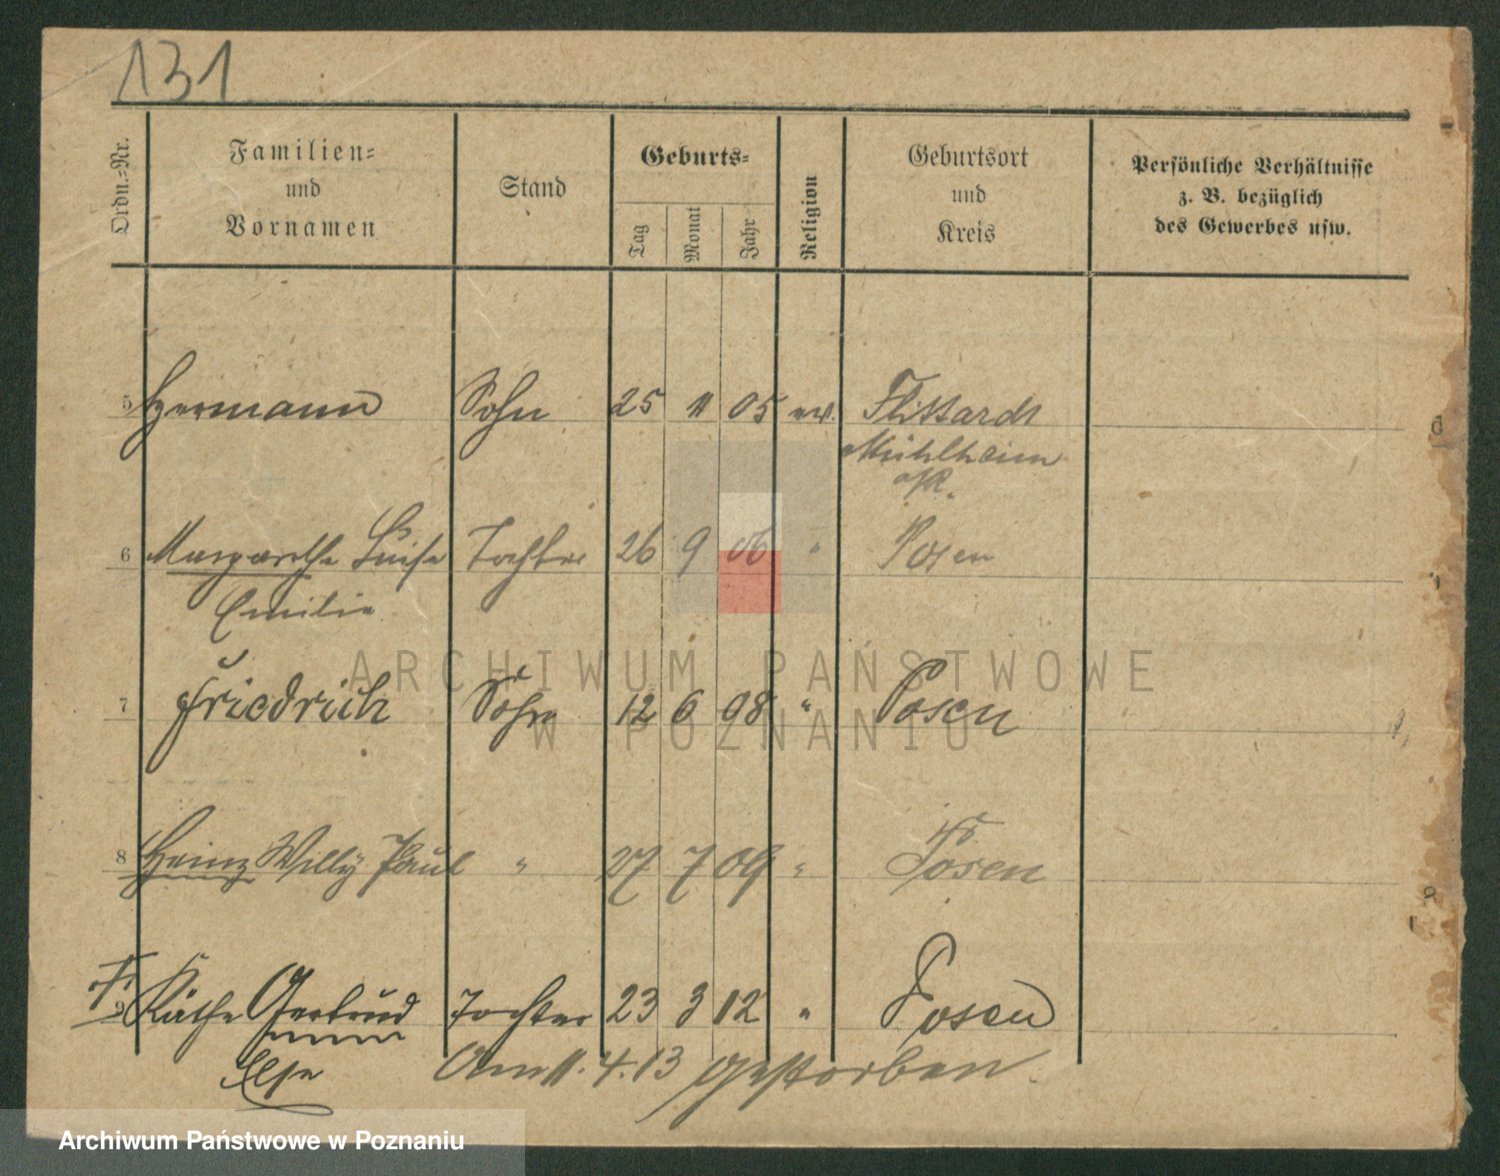 131
Ordn.-Nr.
Familien-
und
Vornamen
Stand
Geburts-
Tag Monat Jahr
Religion
Geburtsort
und
Kreis
Persönliche Verhältnisse
z. B. bezüglich
des Gewerbes usw.
5 Hermann Sohn 25 11 05 ev. Flittardt
Mühlheim
a/R.
6 Margarethe Luise Tochter 26 9 06 " Posen
Emilie
ARCHIWUM PAŃSTWOWE
7 Friedrich Sohn 12 6 98 " Posen
W POZNANIU
8 Heinz Willy Paul " 27 7 09 " Posen
9 Käthe Gertrud Tochter 23 3 12 " Posen
Else Am 11.4.13 gestorben.
Archiwum Państwowe w Poznaniu